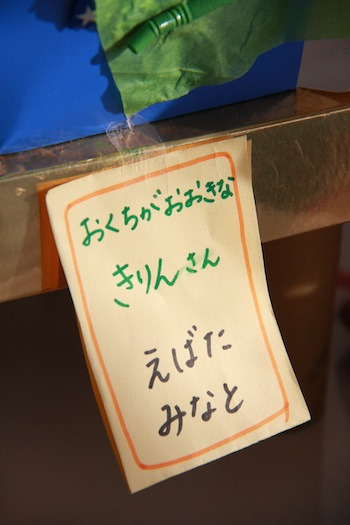 おくちがおおきな
きりんさん
えばた
みなと